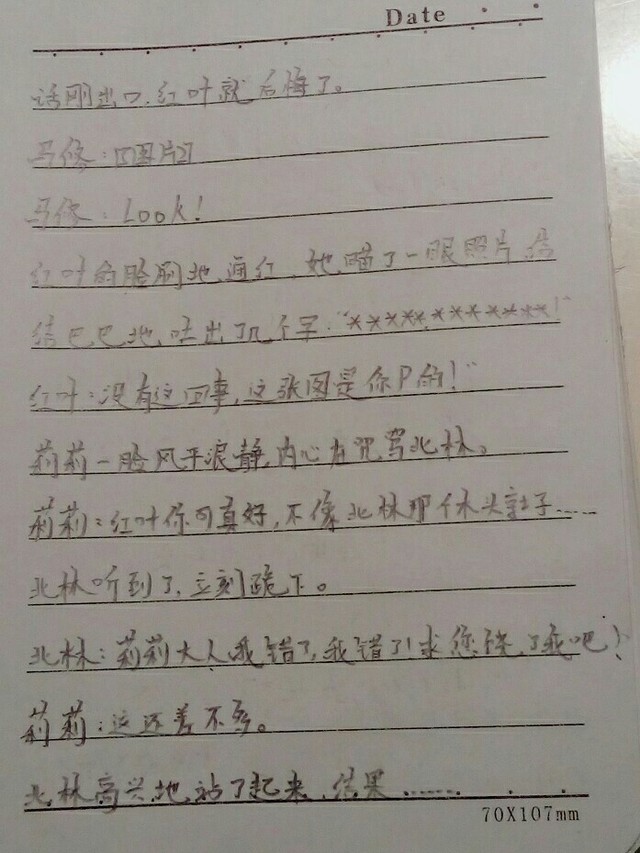 Date
话刚出口,红叶就后悔了。
马修:[图片]
马修:Look!
红叶的脸刷地通红,她瞄了一眼照片,结
结巴巴地吐出了几个字:“************!”
红叶:没有这回事,这张图是你P的!”
莉莉一脸风平浪静,内心在咒骂北林。
莉莉:红叶你可真好,不像北林那个木头桩子……
北林听到了,立刻跪下。
北林:莉莉大人我错了,我错了!求您饶了我吧!
莉莉:这还差不多。
北林高兴地站了起来,结果……
70X107mm